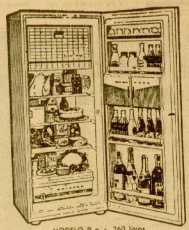 MODELO P 260 litros